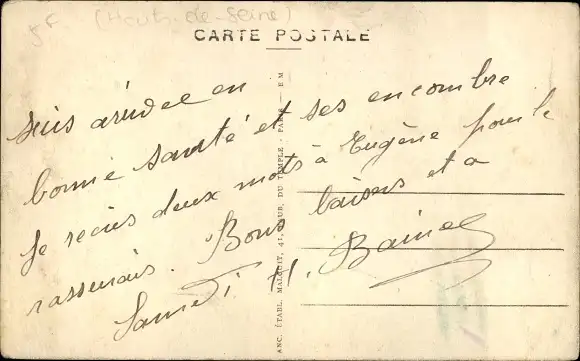 (Hauts-de-Seine)
CARTE POSTALE
suis arivdee en
bonne santé et ses encombre
Je recris deux mots à Eugène pour le
rassurais. Bons baisers et a
Samedi H.
ANC. ÉTABL. MALCUIT, 41, FAUB. DU TEMPLE - PARIS — E M